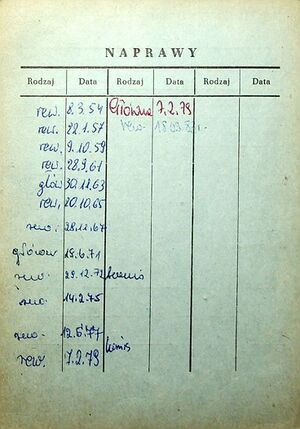 NAPRAWY
Rodzaj Data Rodzaj Data Rodzaj Data
rew. 8.3.54 Główna 7.2.79
rew. 22.1.57 rew.
rew. 9.10.59
rew. 28.9.61
głów 30.11.63
rew. 20.10.65
rew. 28.11.67
główna 19.6.71
rew. 29.12.72
rew. 14.2.75
rew. 12.5.77
rew. 7.2.79